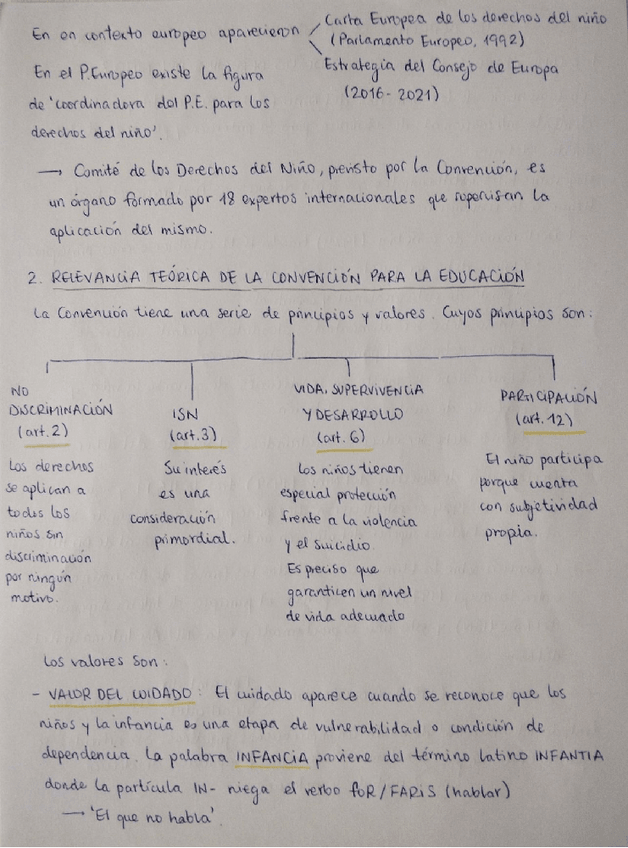 En on contexto europeo aparecieron
Carta Europea de los derechos del niño
(Parlamento Europeo, 1992)
Estrategia del Consejo de Europa
(2016-2021)
En el P.Europeo existe la figura
de 'coordinadora del P.E. para los
derechos del niño'.
→ Comité de los Derechos del Niño, previsto por la Convención, es
un órgano formado por 18 expertos internacionales que supervisan la
aplicación del mismo.
2. RELEVANCIA TEÓRICA DE LA CONVENCIÓN PARA LA EDUCACIÓN
La Convención tiene una serie de principios y valores. Cuyos principios son:
NO
DISCRIMINACIÓN
(art. 2)
Los derechos
se aplican a
todos los
niños sin
discriminación
por ningún
motivo.
ISN
(art. 3)
Su interés
es una
consideración
primordial.
VIDA, SUPERVIVENCIA
Y DESARROLLO
(art. 6)
Los niños tienen
especial protección
frente a la violencia
y el suicidio.
Es preciso que
garanticen un nivel
de vida adecuado
PARTICIPACIÓN
(art. 12)
El niño participa
porque cuenta
con subjetividad
propia.
Los valores son:
- VALOR DEL CUIDADO: El cuidado aparece cuando se reconoce que los
niños y la infancia es una etapa de vulnerabilidad o condición de
dependencia. La palabra INFANCIA proviene del término latino INFANTIA
donde la partícula IN- niega el verbo foR/FARiS (hablar)
→ 'El que no habla'.